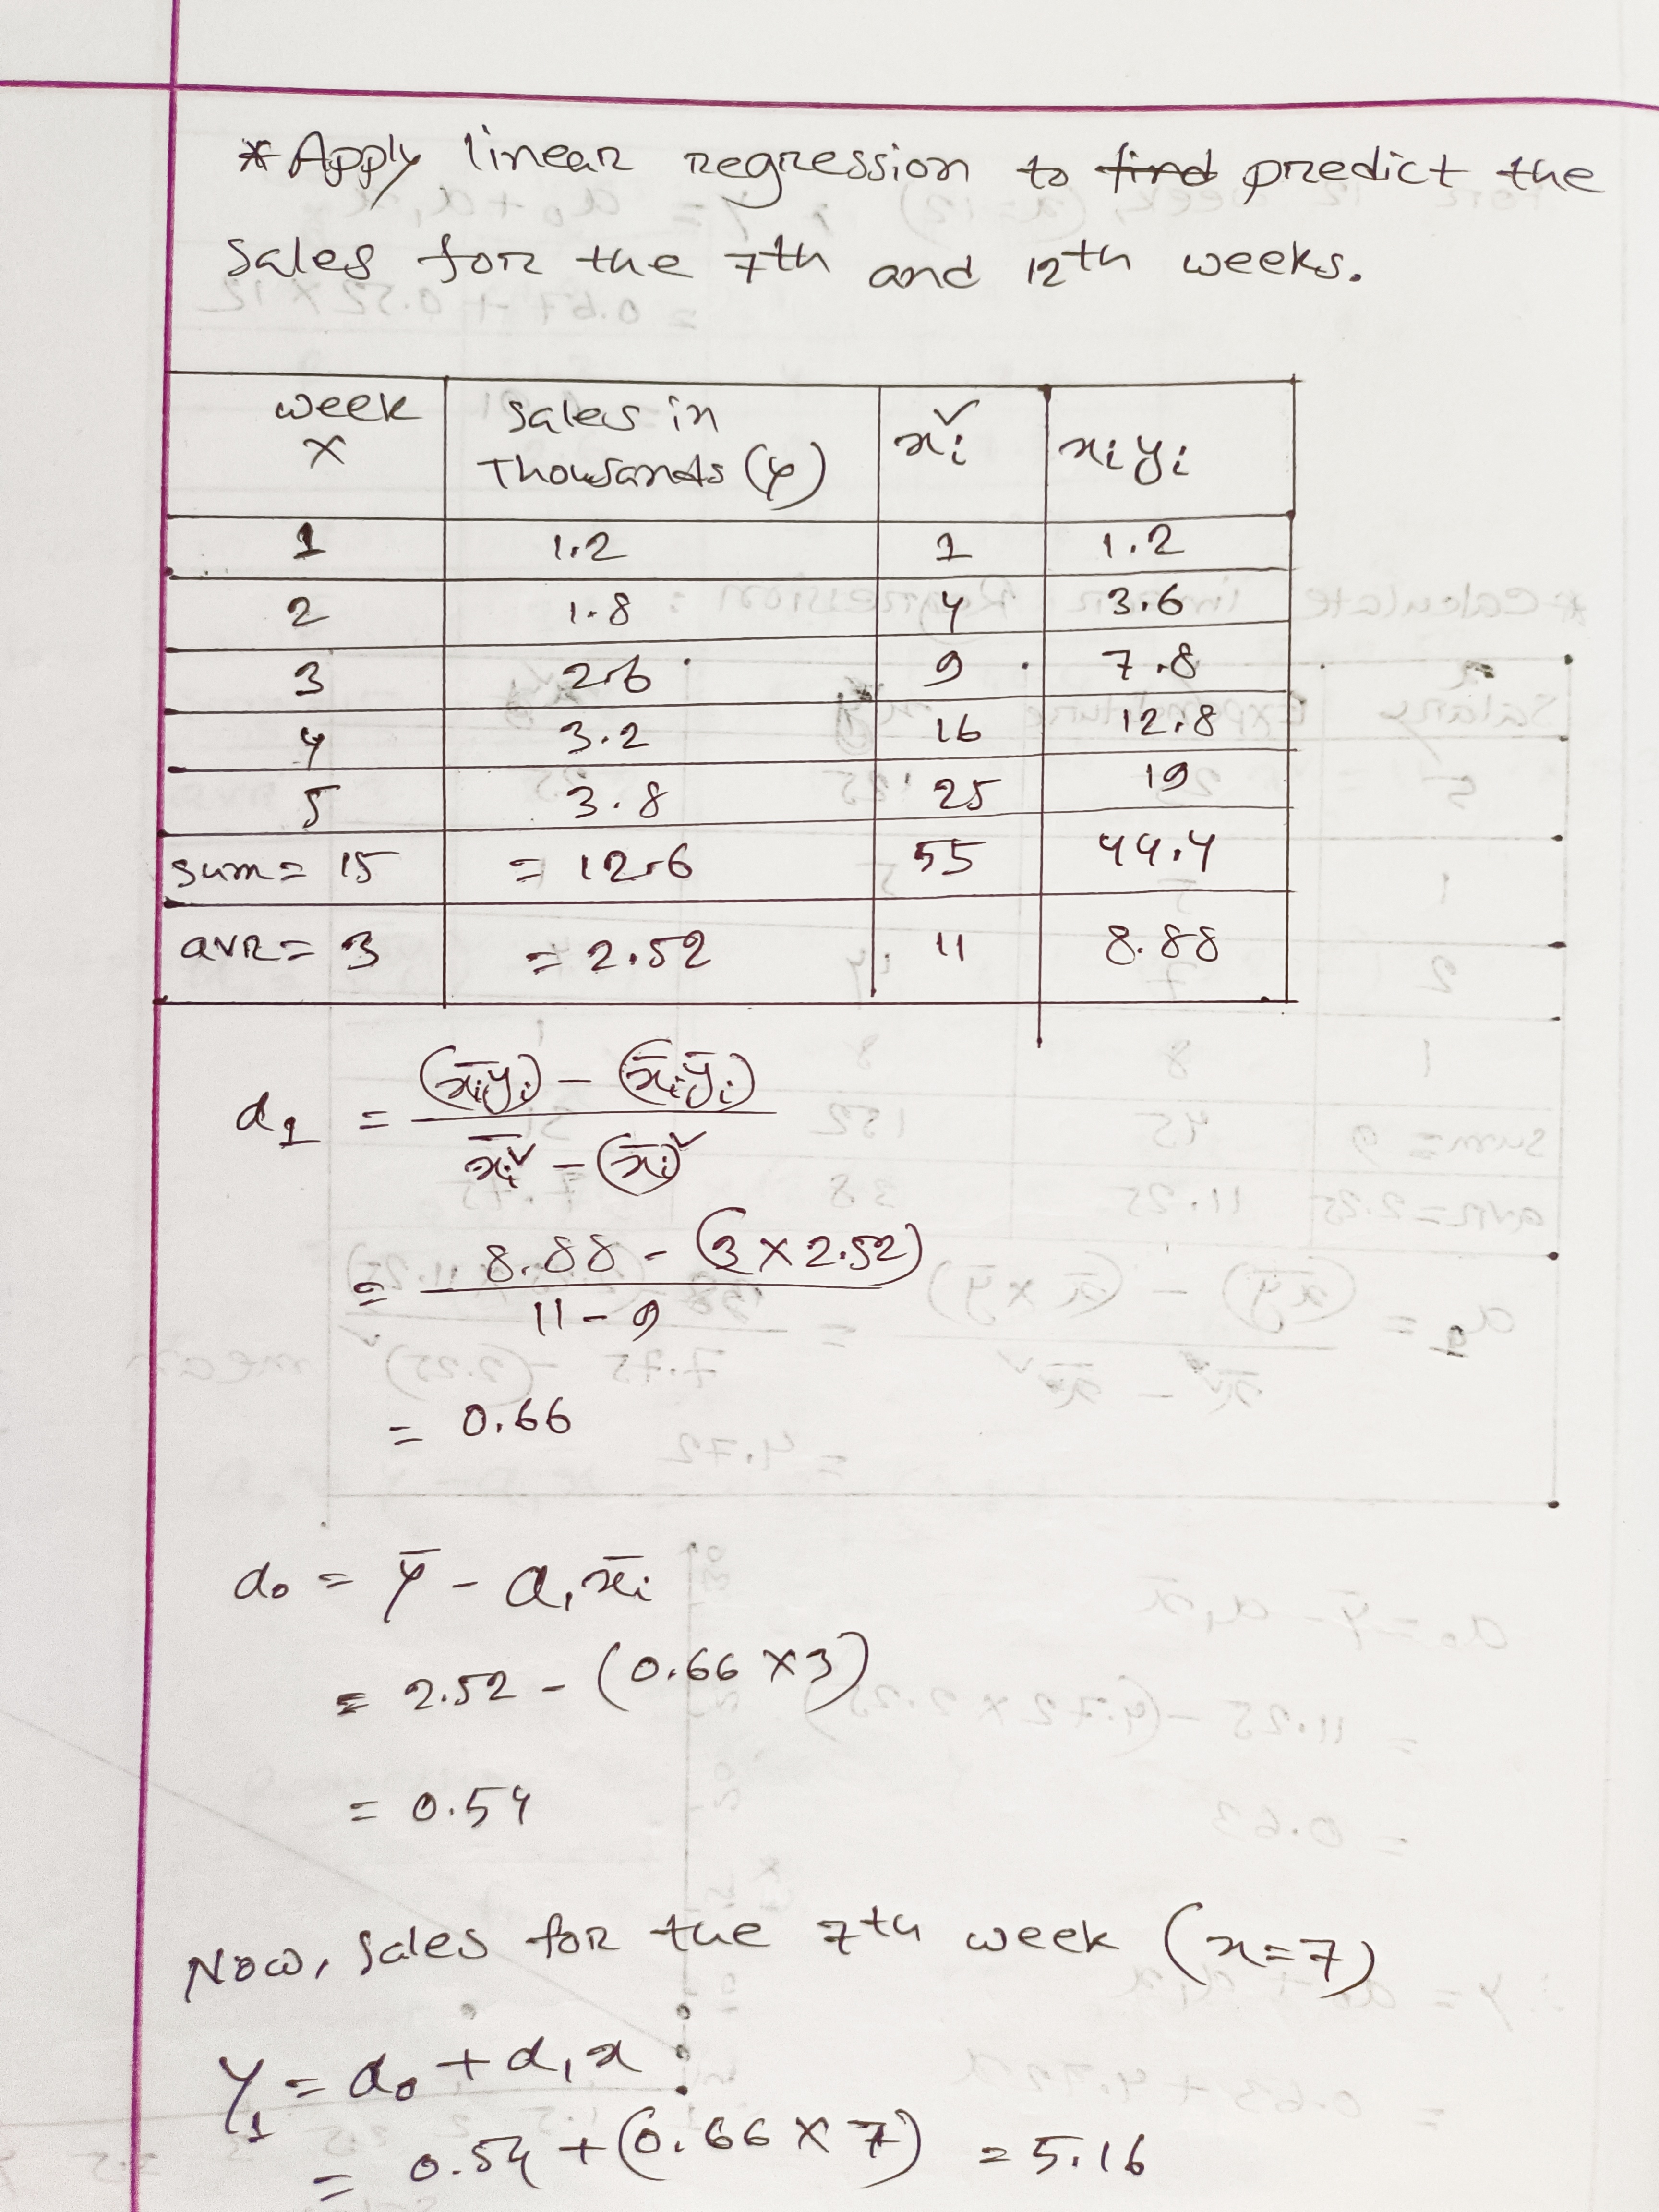 *Apply linear regression to find predict the
sales for the 7th and 12th weeks.
week X | sales in Thousands (y) | xi² | xiyi
1 | 1.2 | 1 | 1.2
2 | 1.8 | 4 | 3.6
3 | 2.6 | 9 | 7.8
4 | 3.2 | 16 | 12.8
5 | 3.8 | 25 | 19
sum = 15 | = 12.6 | 55 | 44.4
avr = 3 | = 2.52 | 11 | 8.88
a₁ = ((x̄iyi) - (x̄iȳi)) / (x̄i² - (x̄i)²)
= (8.88 - (3 × 2.52)) / (11 - 9)
= 0.66
a₀ = ȳ - a₁x̄i
= 2.52 - (0.66 × 3)
= 0.54
Now, sales for the 7th week (x=7)
Y₁ = a₀ + a₁x
= 0.54 + (0.66 × 7) = 5.16